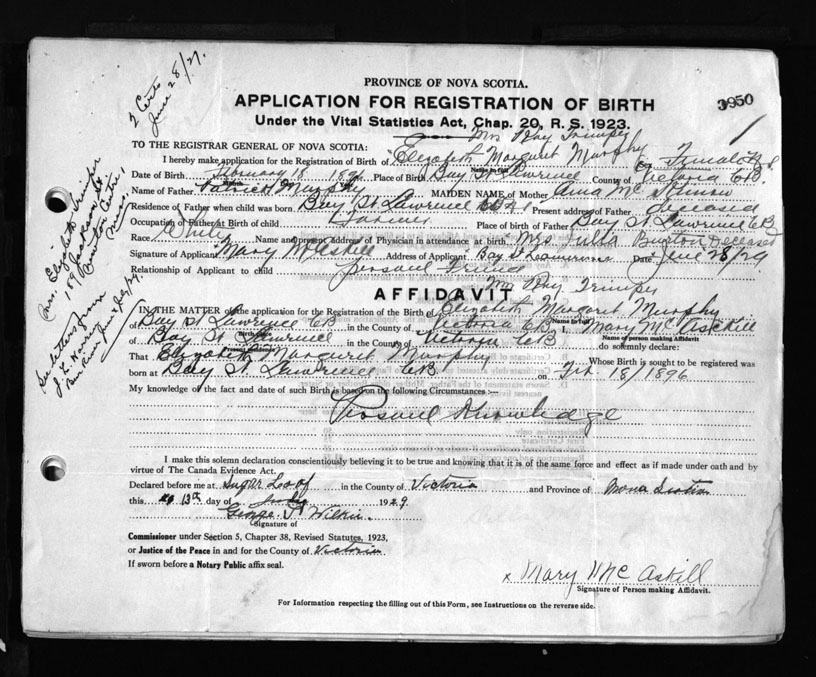 2 Certs
June 28/29.
PROVINCE OF NOVA SCOTIA.
APPLICATION FOR REGISTRATION OF BIRTH
Under the Vital Statistics Act, Chap. 20, R. S. 1923.
3950
1
Mrs Ray Trimper
TO THE REGISTRAR GENERAL OF NOVA SCOTIA:
I hereby make application for the Registration of Birth of Elizabeth Margaret Murphy Female
Date of Birth February 18 1896 Place of Birth Bay St Lawrence County of Victoria CB.
Name of Father Patrick Murphy MAIDEN NAME of Mother Anna Mc
Residence of Father when child was born Bay St Lawrence CB Present address of Father deceased
Occupation of Father at Birth of child Farmer Place of birth of Father Bay St Lawrence CB
Race White Name and present address of Physician in attendance at birth Mrs Julia Burton Deceased
Signature of Applicant Mary McAskill Address of Applicant Bay St Lawrence Date June 28/29
Relationship of Applicant to child personal Friend
Mrs Elizabeth Trimper
189 Jackson St
Newton Centre,
Mass.
See letters from
AFFIDAVIT
Mrs Ray Trimper
IN THE MATTER of the application for the Registration of the Birth of Elizabeth Margaret Murphy
Name in full
of Bay St Lawrence CB in the County of Victoria CB I, Mary McAsckill
Name of person making Affidavit
of Bay St Lawrence in the County of Victoria CB do solemnly declare:
That Elizabeth Margaret Murphy Whose Birth is sought to be registered was
born at Bay St Lawrence CB on Feb. 18/1896
My knowledge of the fact and date of such Birth is based on the following Circumstances :—
Personal Knowledge
I make this solemn declaration conscientiously believing it to be true and knowing that it is of the same force and effect as if made under oath and by
virtue of The Canada Evidence Act.
Declared before me at Sugar Loaf in the County of Victoria and Province of Nova Scotia
this 13th day of July 1929
George J Wilkie.
Signature of
Commissioner under Section 5, Chapter 38, Revised Statutes, 1923,
or Justice of the Peace in and for the County of Victoria
If sworn before a Notary Public affix seal.
x Mary McAskill
Signature of Person making Affidavit.
For Information respecting the filling out of this Form, see Instructions on the reverse side.